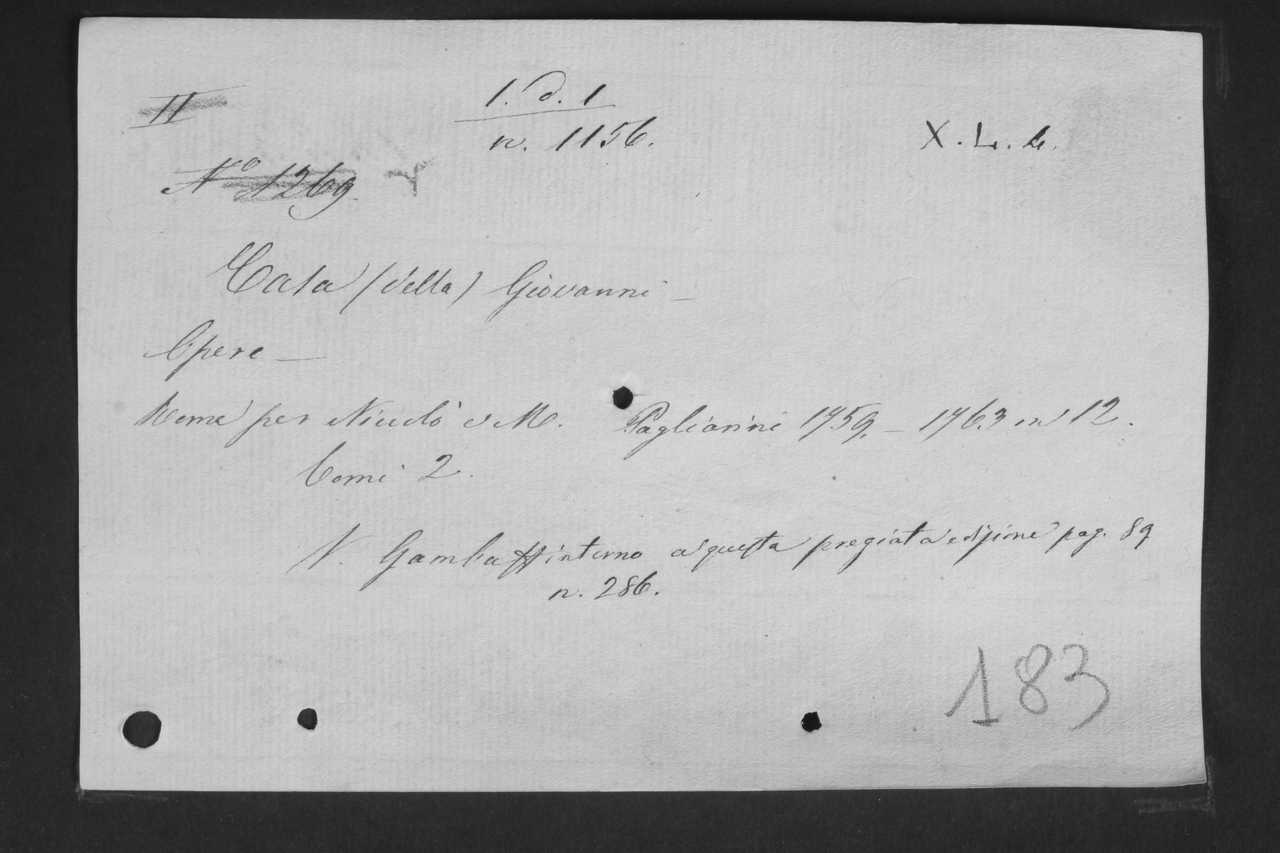 II
1. d. 1
n. 1156.
X. L. 4.
N° 1269
Casa (della) Giovanni –
Opere –
Roma per Niccolò e M. Pagliarini 1759 – 1763 in 12.
Tomi 2.
V. Gamba intorno a questa pregiata edizione pag. 89
n. 286.
183